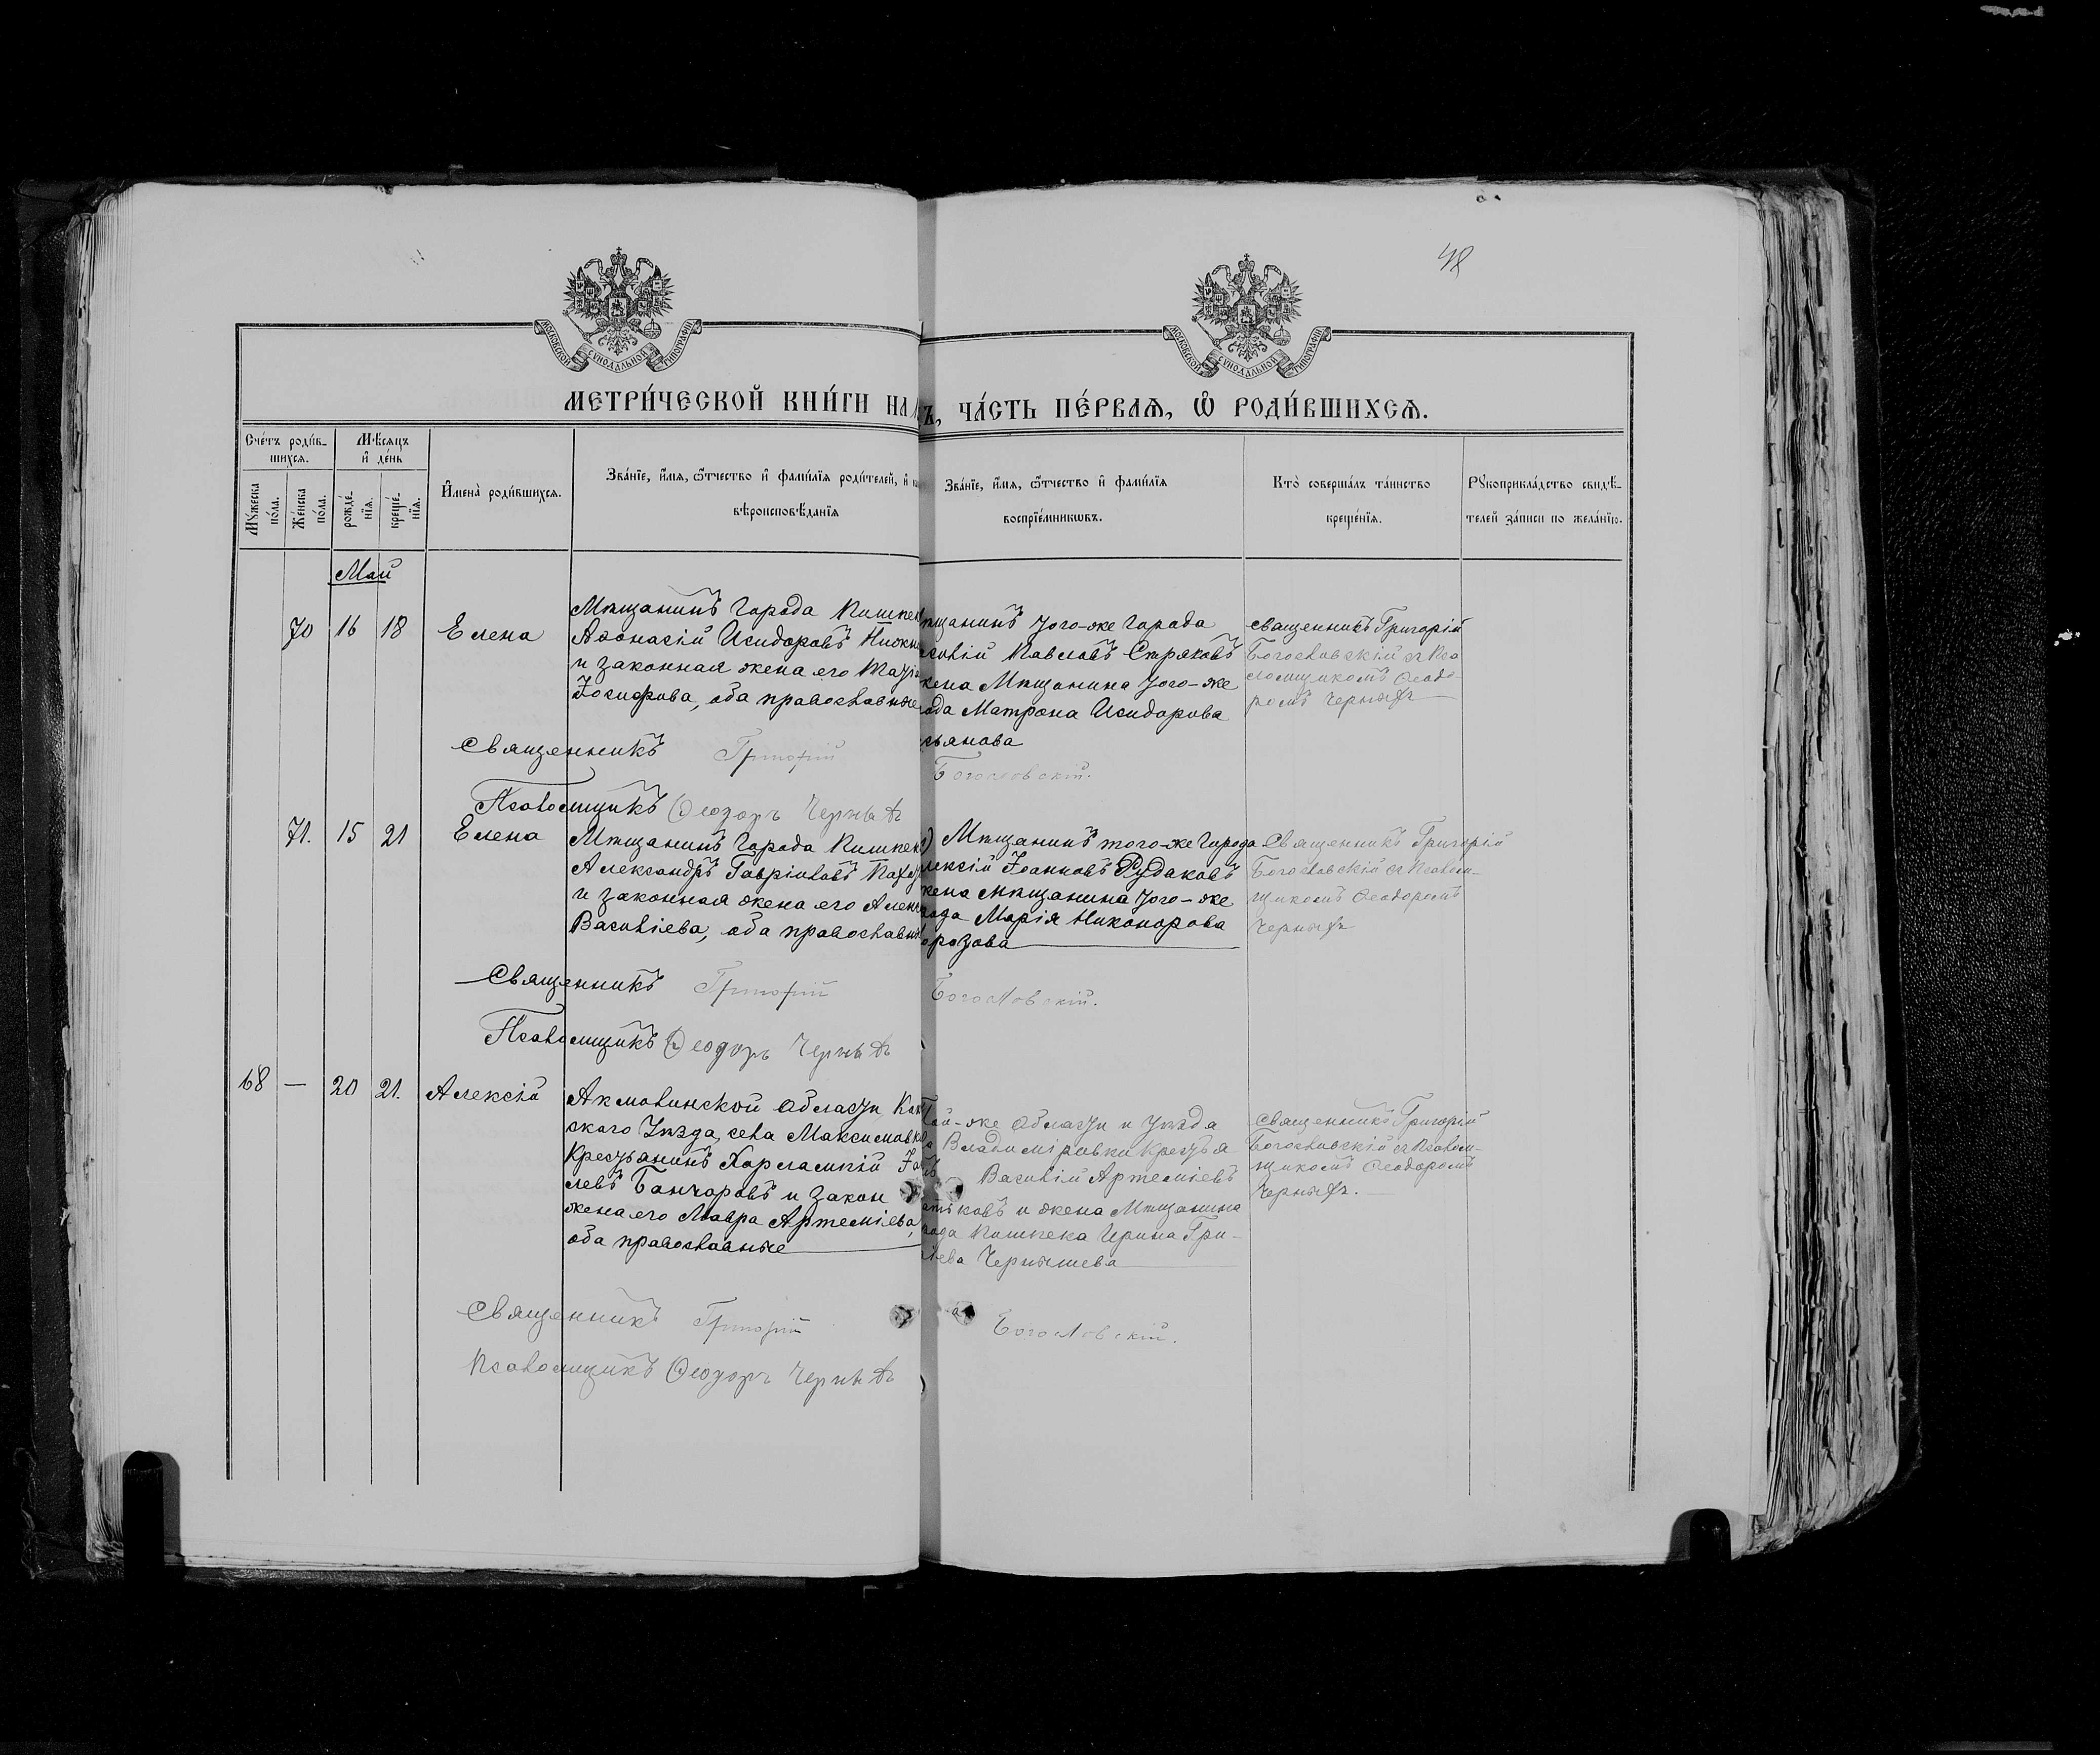 48
МОСКОВСКОЙ СѴНОДАЛЬНОЙ ТИПОГРАФІИ
МОСКОВСКОЙ СѴНОДАЛЬНОЙ ТИПОГРАФІИ
МЕТРИ́ЧЕСКОЙ КНИ́ГИ НА
Ъ, ЧА́СТЬ ПЕ́РВАЯ, Ѡ҆ РОДИ́ВШИХСЯ.
Сче́тъ роди́в-
шихся.
Мѣ́сяцъ
и҆ де́нь
Мꙋ́жеска
по́ла.
Же́нска
по́ла.
рожде́-
нїя.
креще́-
нїя.
И҆мена̀ роди́вшихся.
Зва́нїе, и҆́мя, ѻ҆́тчество и҆ фами́лїя роди́телей, и҆
вѣроисповѣ́данїя
Зва́нїе, и҆́мя, ѻ҆́тчество и҆ фами́лїя
воспрїе́мникѡвъ.
Кто̀ соверша́лъ та́инство
креще́нїя.
Рꙋкоприкла́дство свидѣ́-
телей за́писи по жела́нїю.
Май
70 16 18 Елена
Мѣщанинъ города Пишпек
Аѳонасій Исидоровъ Нижн
и законная жена его
Іосифова, оба православные
щанинъ того-же города
Павловъ Стряковъ
жена Мѣщанина того-же
ода Матрона Исидорова
ьянова
священникъ Григорій
Богословскій съ Пса
ломщикомъ Ѳеодо-
ромъ Черныхъ
Священникъ Григорій Богословскій.
Псаломщикъ Ѳеодоръ Черныхъ
71. 15 21 Елена
Мѣщанинъ города Пишпек
Александръ Гавріиловъ
и законная жена его
Василіева, оба православн
Мѣщанинъ того-же города
лексій Іоанновъ Рудаковъ
жена мѣщанина того-же
рода Марія Никонорова
орозова
Священникъ Григорій
Богословскій съ Псалом-
щикомъ Ѳеодоромъ
Черныхъ
Священникъ Григорій Богословскій.
Псаломщикъ Ѳеодоръ Черныхъ
68 — 20 21. Алексій
Акмолинской области, Кок
скаго Уѣзда, села Максимовк
Крестьянинъ Харлампій
левъ Банчаровъ и закон
жена его Мавра Артеміева,
оба православные
Той-же области и уѣзда
Владиміровки Крестья
Василій Артеміевъ
и жена Мѣщанина
рода Пишпека Ирина Гри-
ьева Чернышева
священникъ Григорій
Богословскій съ Псалом-
щикомъ Ѳеодоромъ
Черныхъ.
Священникъ Григорій Богословскій.
Псаломщикъ Ѳеодоръ Черныхъ